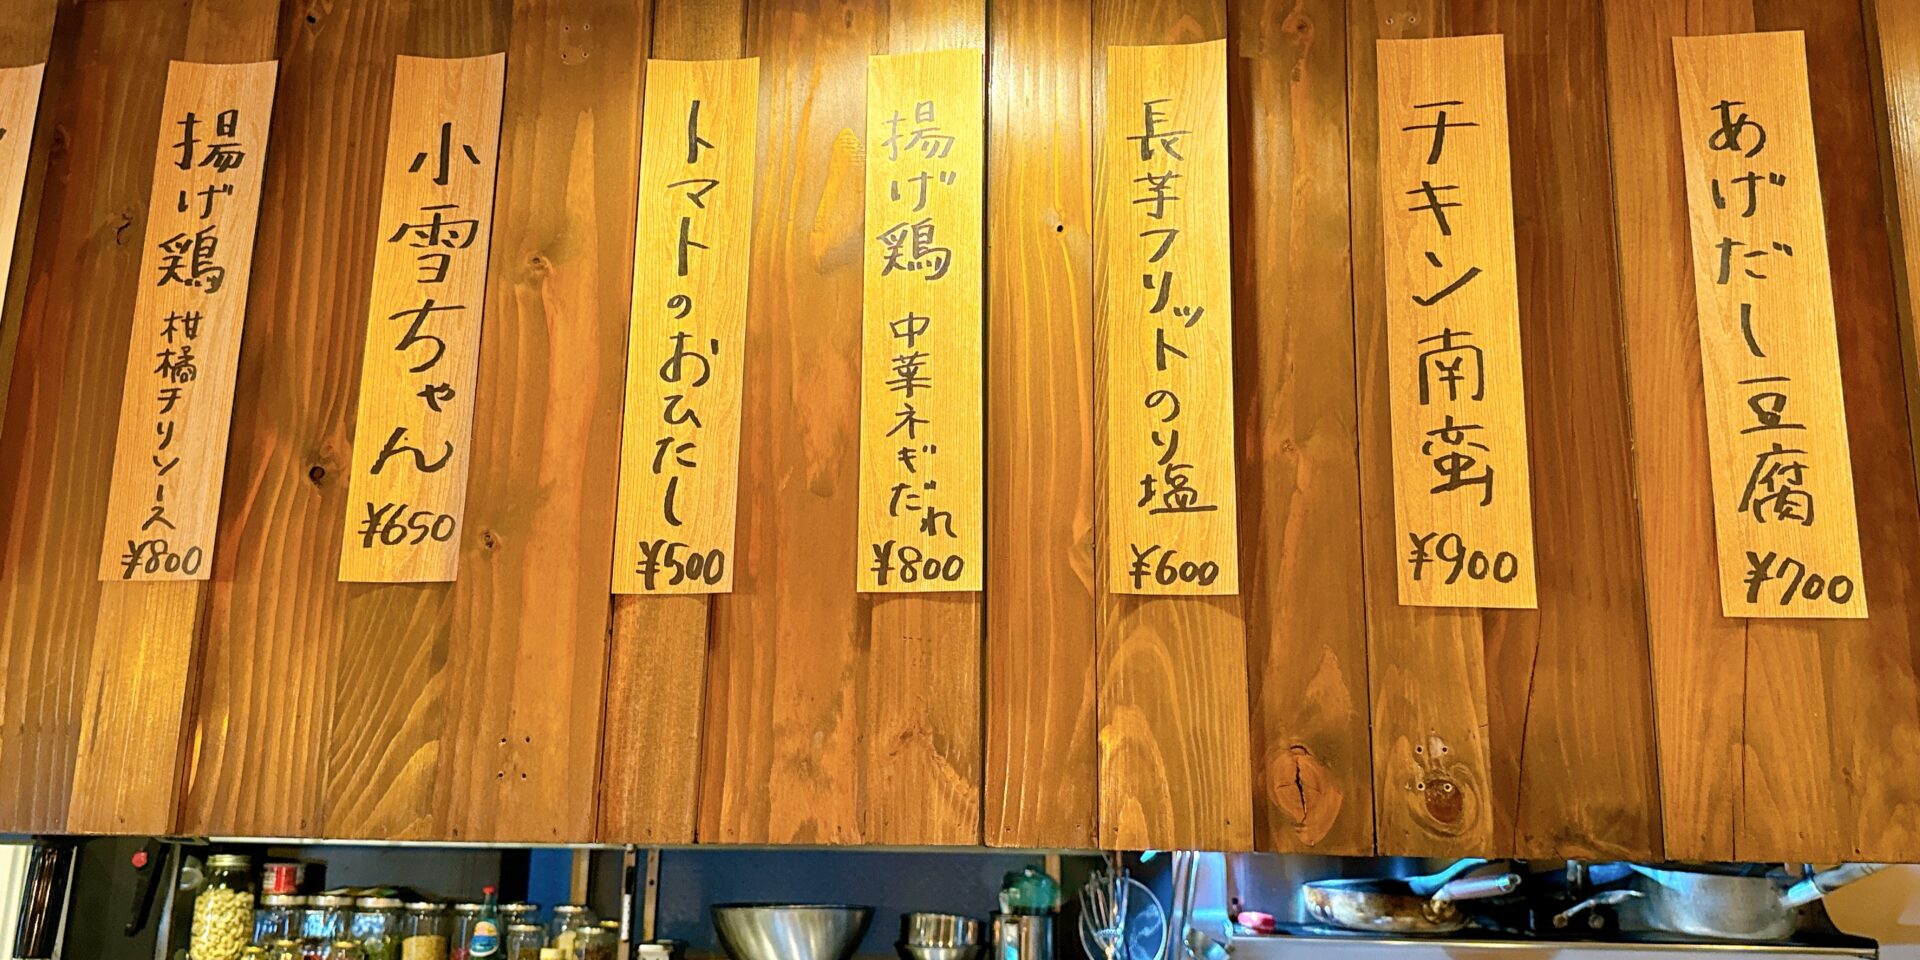 あげだし豆腐
¥700
チキン南蛮
¥900
長芋フリットののり塩
¥600
揚げ鶏 中華ネギだれ
¥800
トマトのおひたし
¥500
小雪ちゃん
¥650
揚げ鶏 柑橘チリソース
¥800